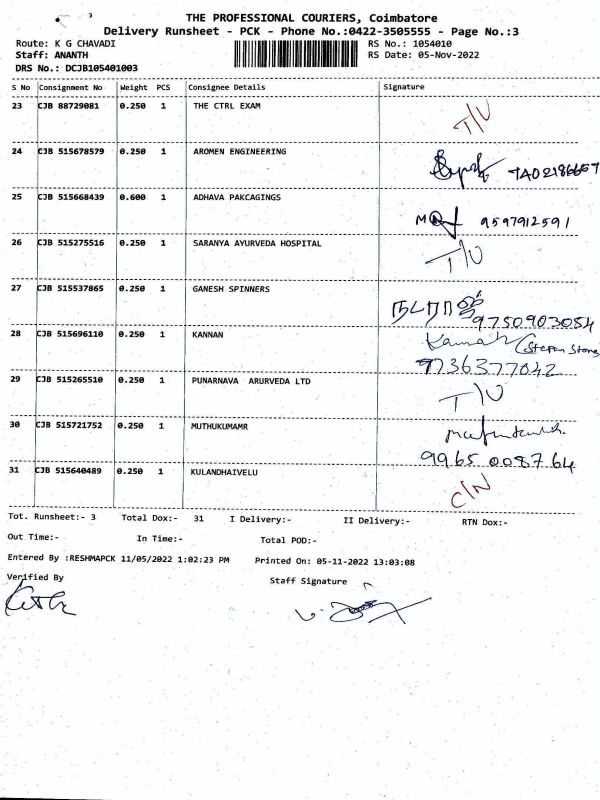 THE PROFESSIONAL COURIERS, Coimbatore
Delivery Runsheet - PCK - Phone No.:0422-3505555 - Page No.:3
Route: K G CHAVADI RS No.: 1054010
Staff: ANANTH RS Date: 05-Nov-2022
DRS No.: DCJB105401003
S No Consignment No Weight PCS Consignee Details Signature
23 CJB 88729081 0.250 1 THE CTRL EXAM T/U
24 CJB 515678579 0.250 1 AROMEN ENGINEERING
25 CJB 515668439 0.600 1 ADHAVA PAKCAGINGS
9597912591
26 CJB 515275516 0.250 1 SARANYA AYURVEDA HOSPITAL T/U
27 CJB 515537865 0.250 1 GANESH SPINNERS
நடராஜ்
9750903054
28 CJB 515696110 0.250 1 KANNAN Kannan
9736377042
29 CJB 515265510 0.250 1 PUNARNAVA ARURVEDA LTD T/U
30 CJB 515721752 0.250 1 MUTHUKUMAMR
9965 008764
31 CJB 515640489 0.250 1 KULANDHAIVELU C/N
Tot. Runsheet:- 3 Total Dox:- 31 I Delivery:- II Delivery:- RTN Dox:-
Out Time:- In Time:- Total POD:-
Entered By :RESHMAPCK 11/05/2022 1:02:23 PM Printed On: 05-11-2022 13:03:08
Verified By Staff Signature